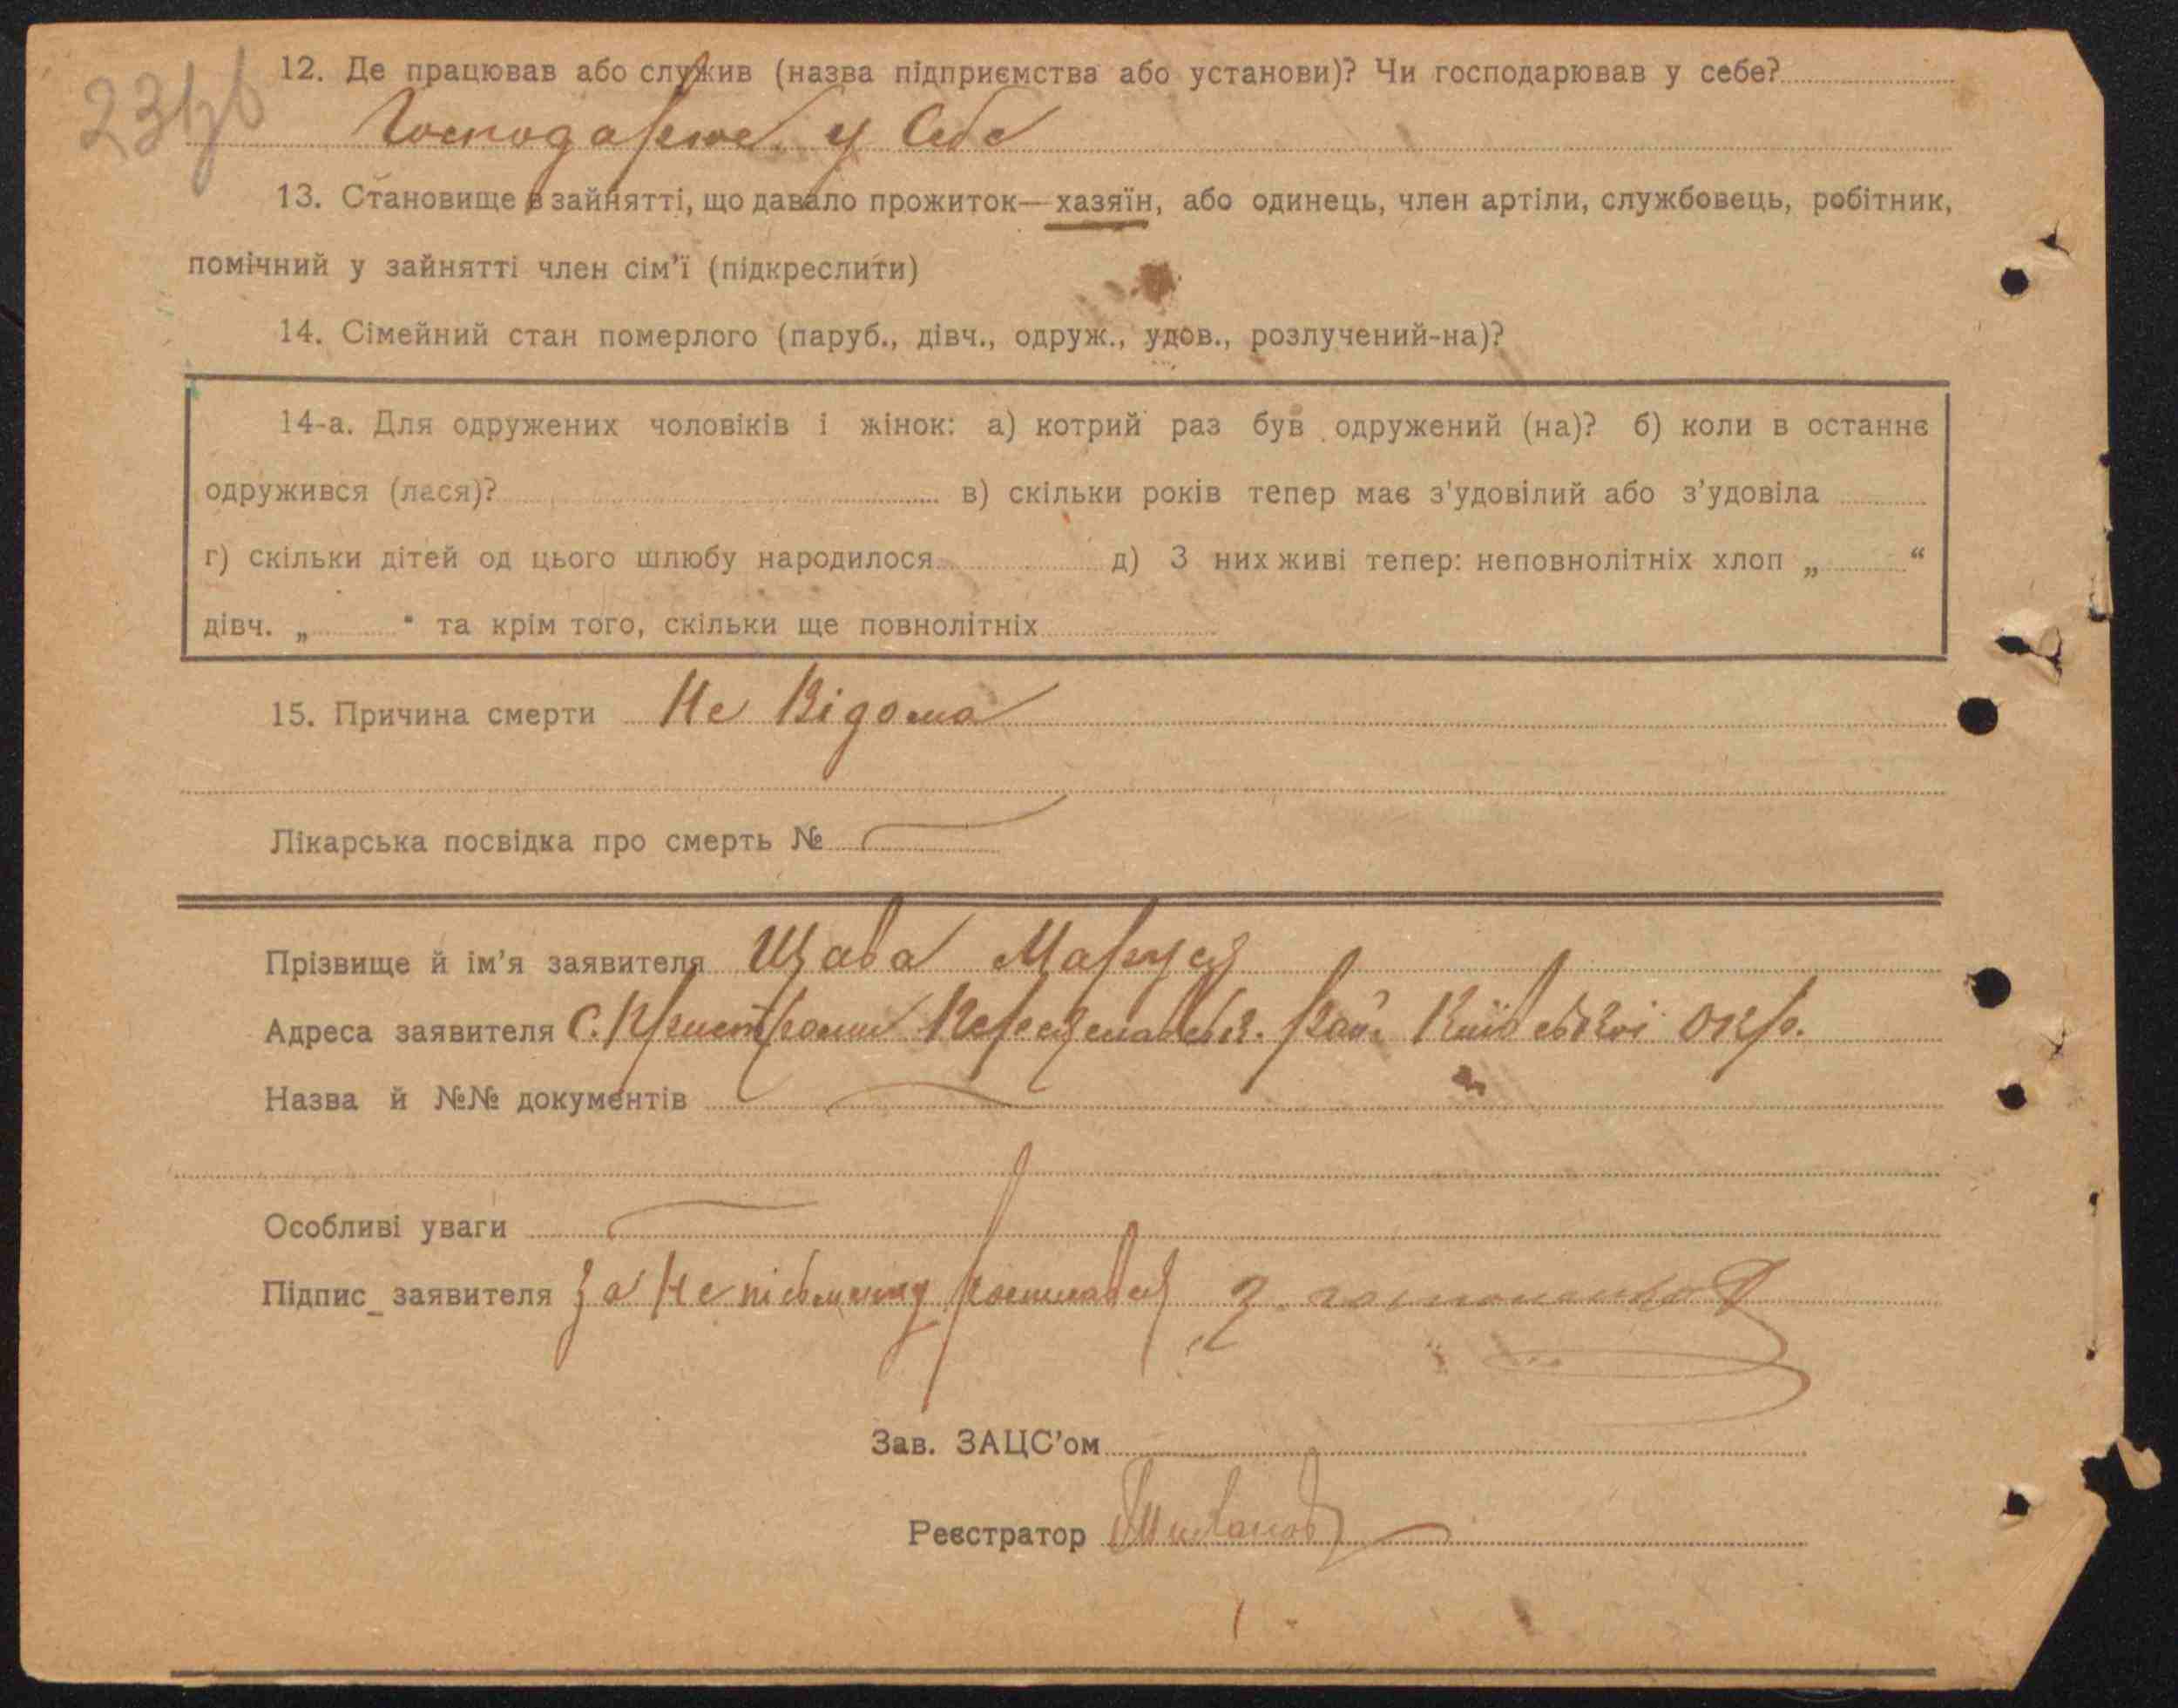 12. Де працював або служив (назва підприємства або установи)? Чи господарював у себе?
Господарює у Себе
13. Становище в зайнятті, що давало прожиток—хазяїн, або одинець, член артіли, службовець, робітник,
помічний у зайнятті член сім'ї (підкреслити)
14. Сімейний стан померлого (паруб., дівч., одруж., удов., розлучений-на)?
14-а. Для одружених чоловіків і жінок: а) котрий раз був одружений (на)? б) коли в останнє
одружився (лася)? в) скільки років тепер має з'удовілий або з'удовіла
г) скільки дітей од цього шлюбу народилося д) З них живі тепер: неповнолітніх хлоп „ “
дівч. „ “ та крім того, скільки ще повнолітніх
15. Причина смерти Не Відома
Лікарська посвідка про смерть №
Прізвище й ім'я заявителя Щаба Маруся
Адреса заявителя С. Пристроми Переяславськ. рай. Київської окр.
Назва й №№ документів
Особливі уваги
Підпис заявителя За Не письменну росписався
Зав. ЗАЦС'ом
Реєстратор